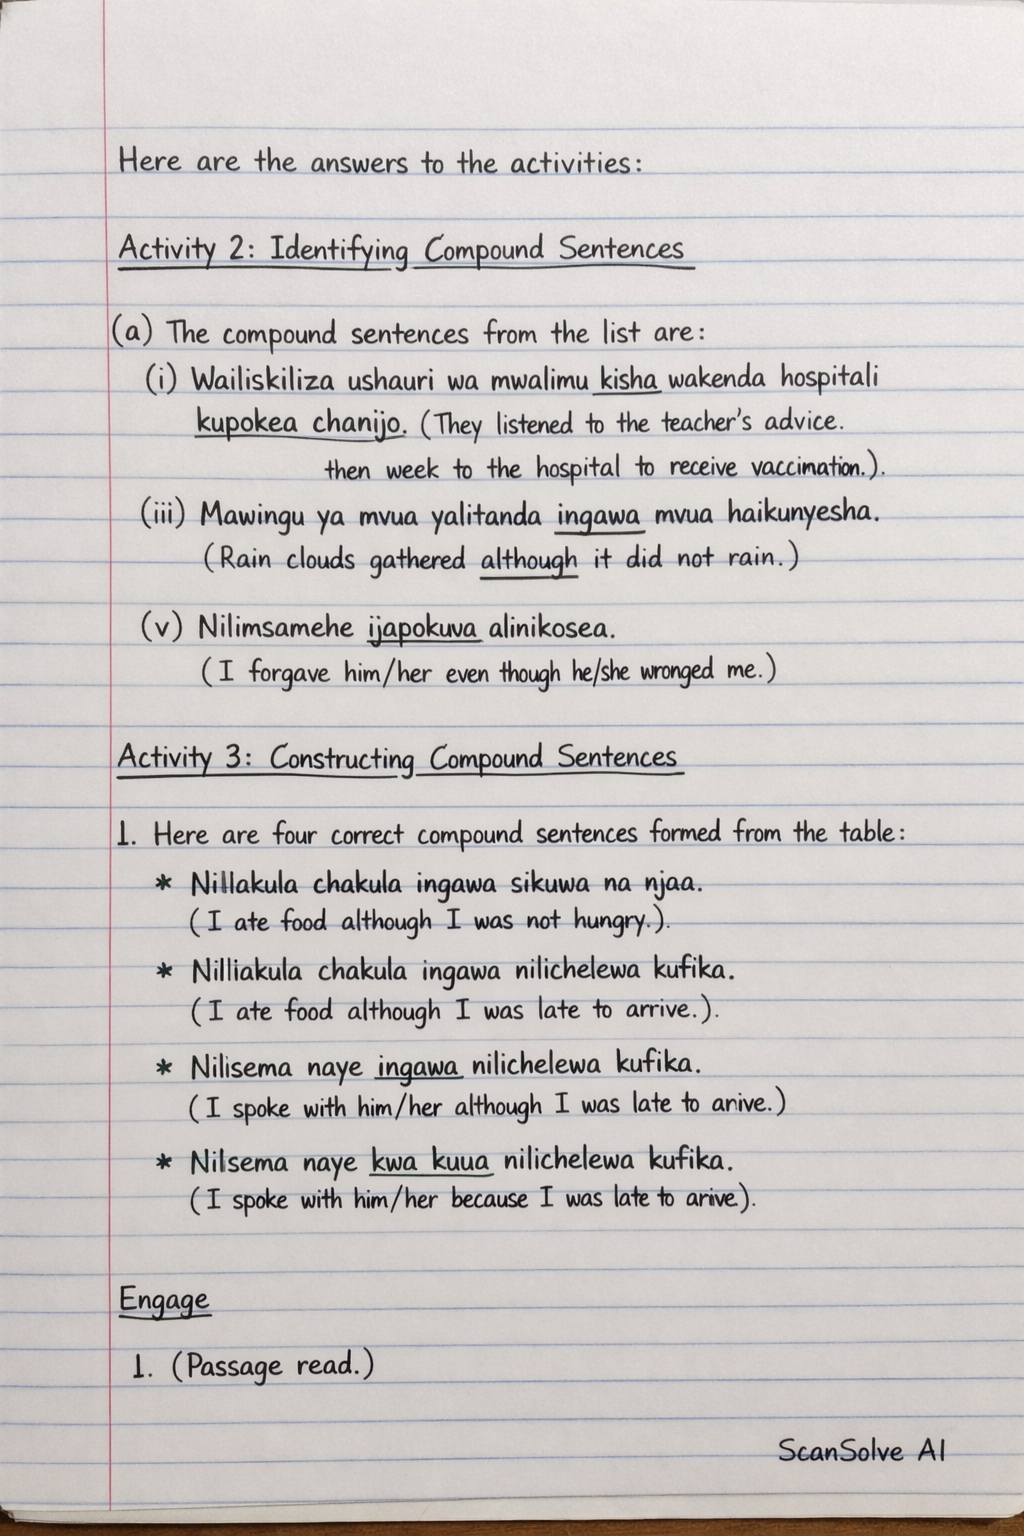 Here are the answers to the activities:
Activity 2: Identifying Compound Sentences
(a) The compound sentences from the list are:
(i) Wailiskiliza ushauri wa mwalimu kisha wakenda hospitali
kupokea chanijo. (They listened to the teacher's advice.
then week to the hospital to receive vaccimation.).
(iii) Mawingu ya mvua yalitanda ingawa mvua haikunyesha.
(Rain clouds gathered although it did not rain.)
(v) Nilimsamehe ijapokuva alinikosea.
(I forgave him/her even though he/she wronged me.)
Activity 3: Constructing Compound Sentences
1. Here are four correct compound sentences formed from the table:
* Nillakula chakula ingawa sikuwa na njaa.
(I ate food although I was not hungry.).
* Nilliakula chakula ingawa nilichelewa kufika.
(I ate food although I was late to arrive.).
* Nilisema naye ingawa nilichelewa kufika.
(I spoke with him/her although I was late to anive.)
* Nilsema naye kwa kuua nilichelewa kufika.
(I spoke with him/her because I was late to arive).
Engage
1. (Passage read.)
ScanSolve AI